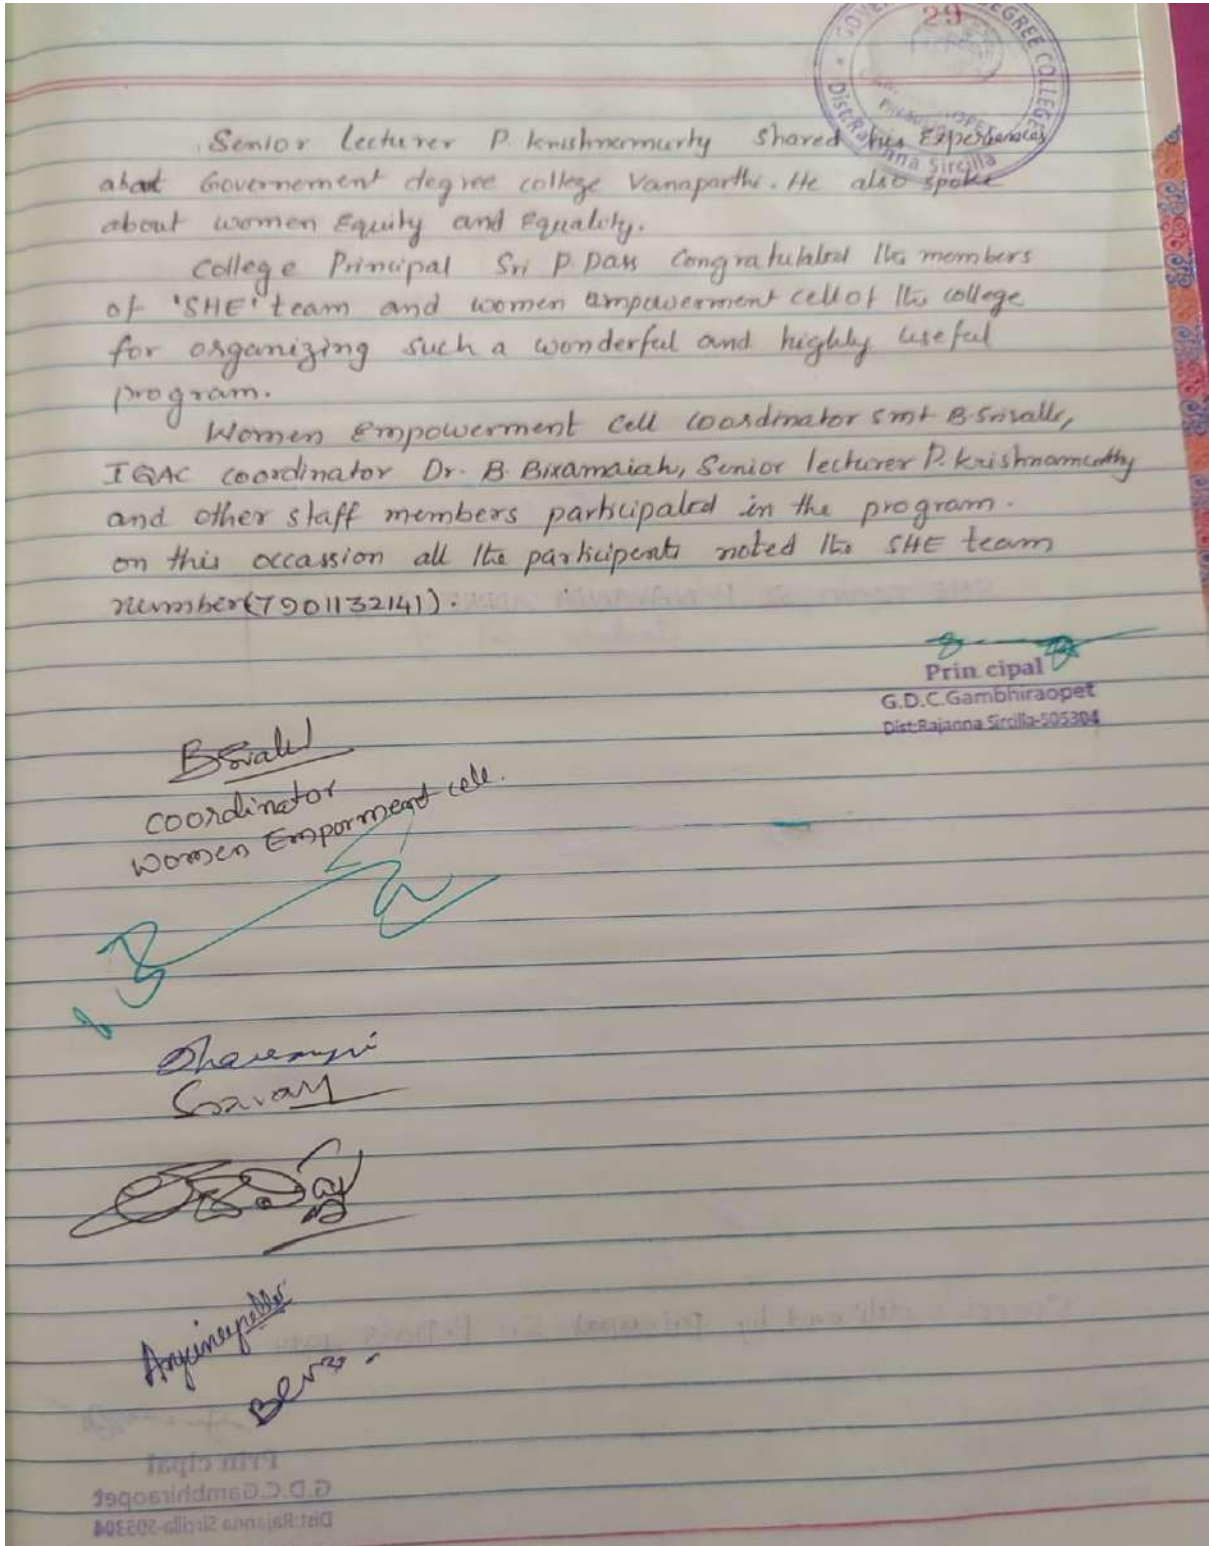 29
GOVERNMENT DEGREE COLLEGE
Dist:Rajanna Sircilla
Senior lecturer P. krishnamurty shared his Experiences
about Governement degree college Vanaparthi. He also spoke
about women Equity and Equality.
College Principal Sri P. Dass Congratulated the members
of 'SHE' team and women ampowerment cell of the college
for organizing such a wonderful and highly useful
program.
Women Empowerment Cell Coordinator smt B. Srivalli,
IQAC coordinator Dr. B. Bixamaiah, Senior lecturer P. krishnamurthy
and other staff members participated in the program.
on this occassion all the participents noted the SHE team
number(7901132141).
Prin cipal
G.D.C.Gambhiraopet
Dist:Rajanna Sircilla-505304
coordinator
women Emporment cele.
Prin cipal
G.D.C.Gambhiraopet
Dist:Rajanna Sircilla-505304